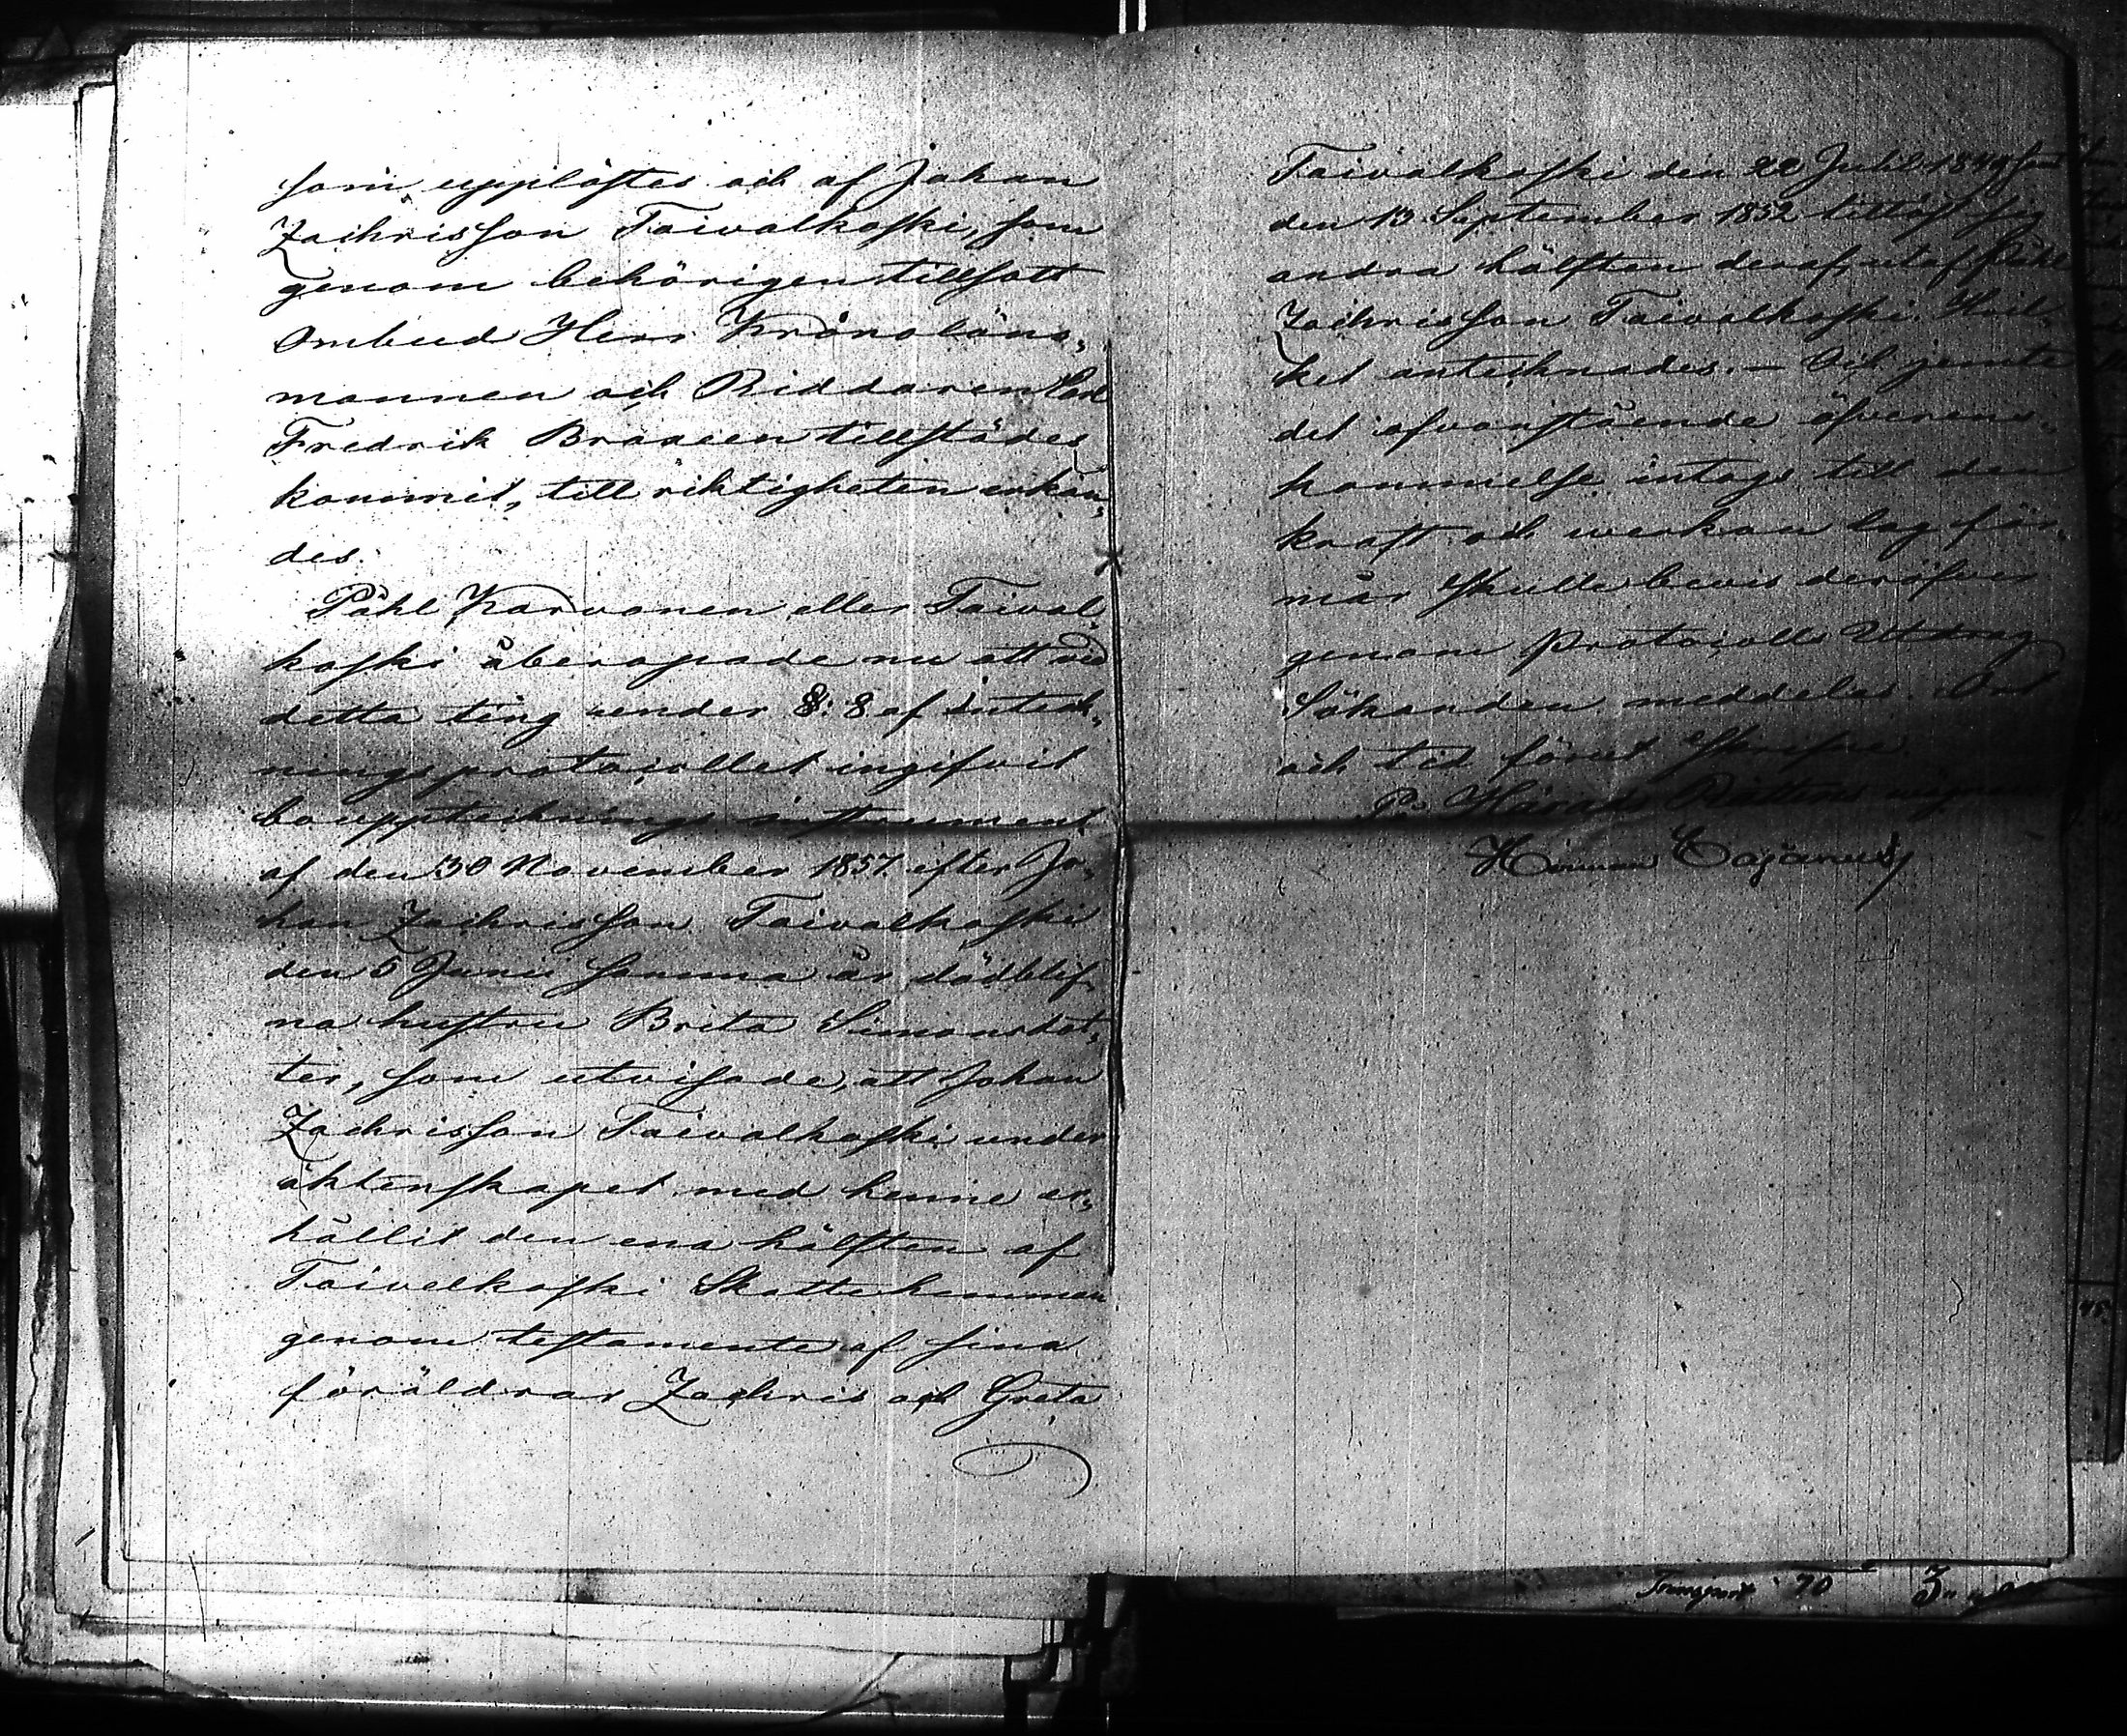 som upplästes och af Johan
Zachrisson Taivalkoski, som
genom behörigen tillsatt
Ombud Herr Kronoläns„
mannen och Riddaren Carl
Fredrik Braxen tillstädes
kommit, till riktigheten erkän„
des.
Påhl Karvonen eller Taival„
koski åberopade nu att vid
detta ting under §: 8 af inteck„
ningsprotocollet ingifvit
bouppteckningsinstrument
af den 30 November 1857 efter Jo„
han Zachrisson Taivalkoski
den 5 Junii samma år dödblif„
na hustru Brita Simonsdot„
ter, som utvisade, att Johan
Zachrisson Taivalkoski under
äktenskapet med henne er„
hållit den ena hälften af
Taivalkoski Skattehemman
genom testamente af sina
föräldrar Zachris och Greta
Taivalkoski den 22 Julii 1849 samt
den 13 September 1852 tillöst sig
andra hälften deraf, utaf Påhl
Zachrisson Taivalkoski. Hvil„
ket antecknades. — Och jemte
det ofvanstående öfverens„
kommelse intogs till den
kraft och werkan lag för„
mår skulle bevis deröfver
genom Protocolls Utdrag
Sökanden meddelas. Ort
och tid förut skrefne
På Härads Rättens vägnar
Herman Cajanus
Transport 70